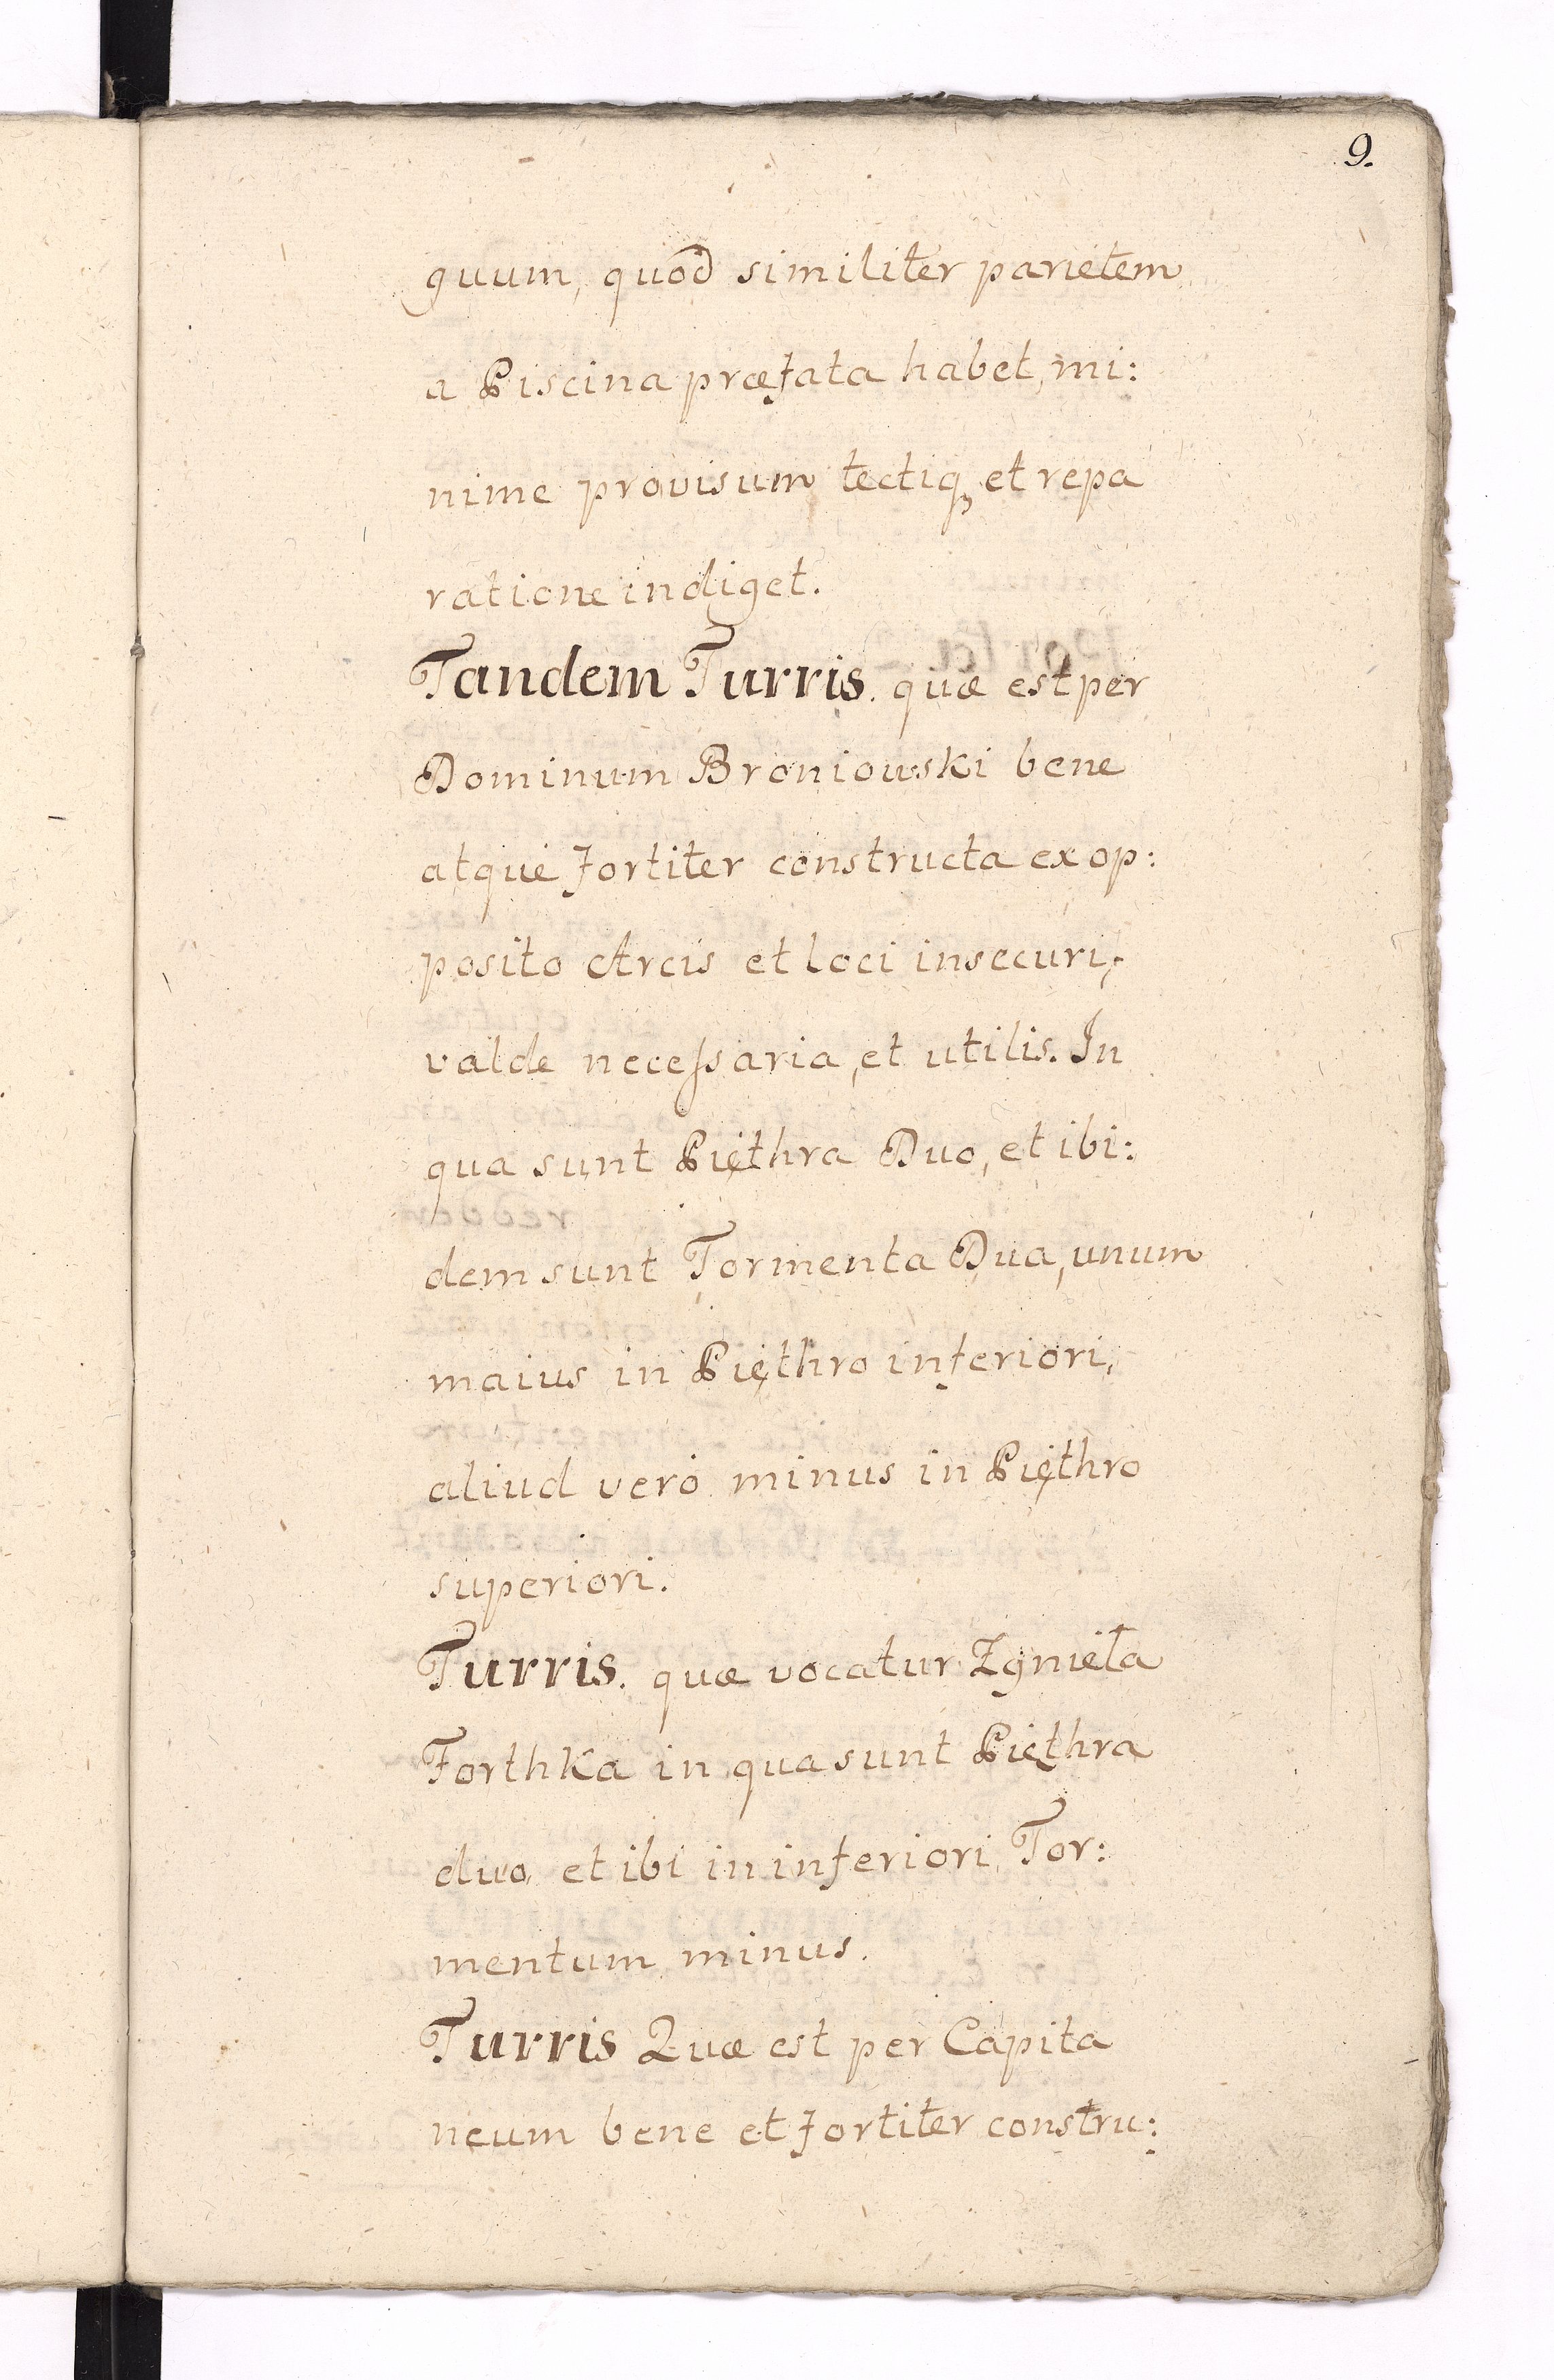 9.
guum, quod similiter parietem
a Piscina præfata habet, mi:
nime provisum tectiq; et repa
ratione indiget.
Tandem Turris. quæ est per
Dominum Broniowski bene
atque fortiter constructa ex op:
posito Arcis et loci insecuri,
valde necessaria, et utilis. In
qua sunt Pięthra Duo, et ibi:
dem sunt Tormenta Dua, unum
maius in Pięthro inferiori,
aliud vero minus in Pięthro
superiori.
Turris. quæ vocatur Zgnieła
Forthka in qua sunt Pięthra
duo, et ibi in inferiori Tor:
mentum minus.
Turris Quæ est per Capita
neum bene et fortiter constru: